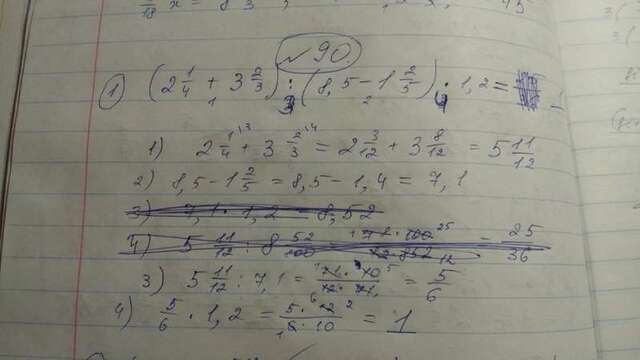 №90.
1 (2 1/4 + 3 2/3) : (8,5 - 1 2/5) · 1,2 = 1
1 3 2 4
1) 2 1/4 + 3 2/3 = 2 3/12 + 3 8/12 = 5 11/12
2) 8,5 - 1 2/5 = 8,5 - 1,4 = 7,1
3) 7,1 · 1,2 = 8,52
4) 5 11/12 : 8 52/100 = 71 · 100 / 12 · 852 = 25/36
3) 5 11/12 : 7,1 = 71 · 10 / 12 · 71 = 5/6
4) 5/6 · 1,2 = 5 · 12 / 6 · 10 = 1